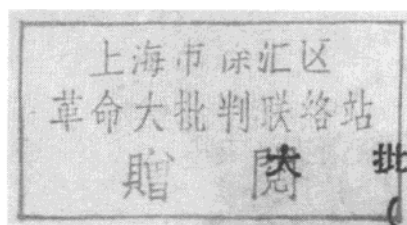 上海市徐汇区
革命大批判联络站
贈閱
大批
(